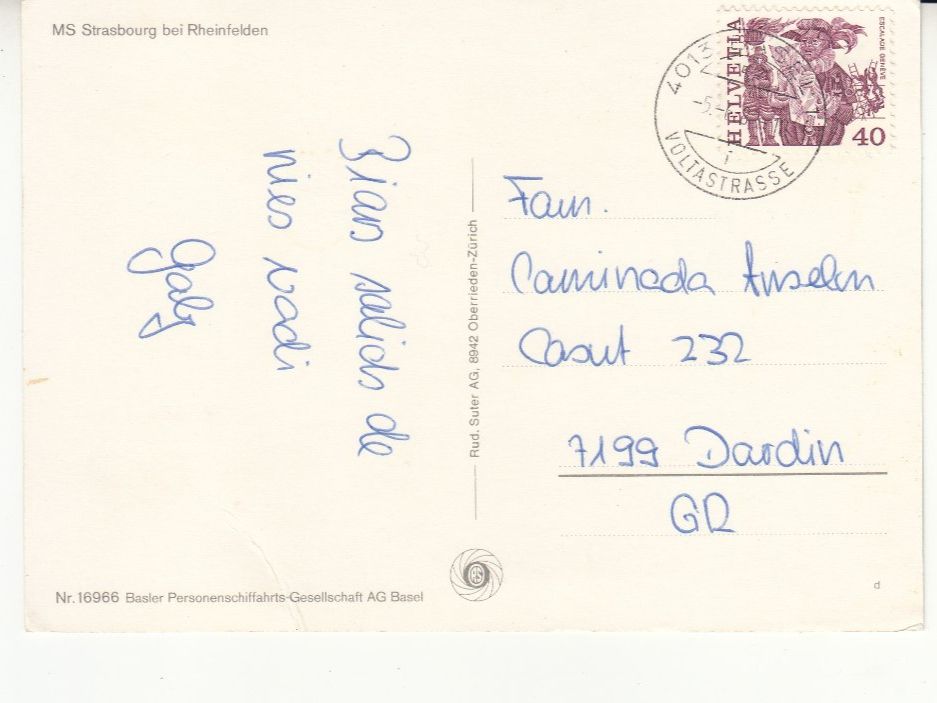 MS Strasbourg bei Rheinfelden
Bians salids de
nies vadi
Gaby
Rud. Suter AG, 8942 Oberrieden-Zürich
HELVETIA
ESCALADE GENÈVE
40
4013
VOLTASTRASSE
Fam.
Caminada Anselm
Casut 232
7199 Dardin
GR
Nr. 16966 Basler Personenschiffahrts-Gesellschaft AG Basel
d